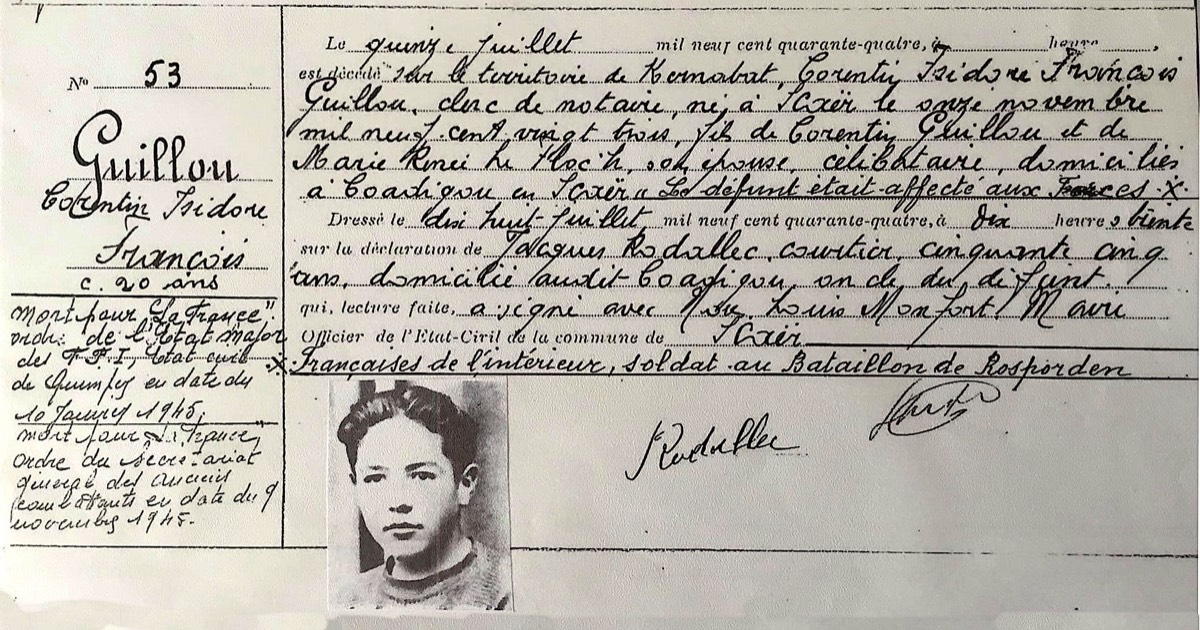 N° 53
Guillou
Corentin Isidore
François
c. 20 ans
mort pour "La France"
ordre de l'Etat major
des F.F.I, Etat civil
de Quimper en date du
10 Janvier 1945,
mort pour la France,
ordre du Secrétariat
général des anciens
combattants en date du 9
novembre 1945.
Le quinze juillet mil neuf cent quarante-quatre, à heure ,
est décédé sur le territoire de Kernabat, Corentin Isidore François
Guillou, clerc de notaire, né à Scaër le onze novembre
mil neuf cent vingt trois, fils de Corentin Guillou et de
Marie Renée Le Floc'h, son épouse, célibataire, domiciliés
à Coadigou en Scaër. Le défunt était affecté aux Forces X
Dressé le dix huit juillet, mil neuf cent quarante-quatre, à dix heures trente
sur la déclaration de Jacques Rodallec, courtier, cinquante cinq
ans, domicilié audit Coadigou, oncle du défunt
qui, lecture faite, a signé avec Nous, Louis Monfort, Maire
Officier de l'Etat-Civil de la commune de Scaër
X Françaises de l'intérieur, soldat au Bataillon de Rosporden
JRodallec